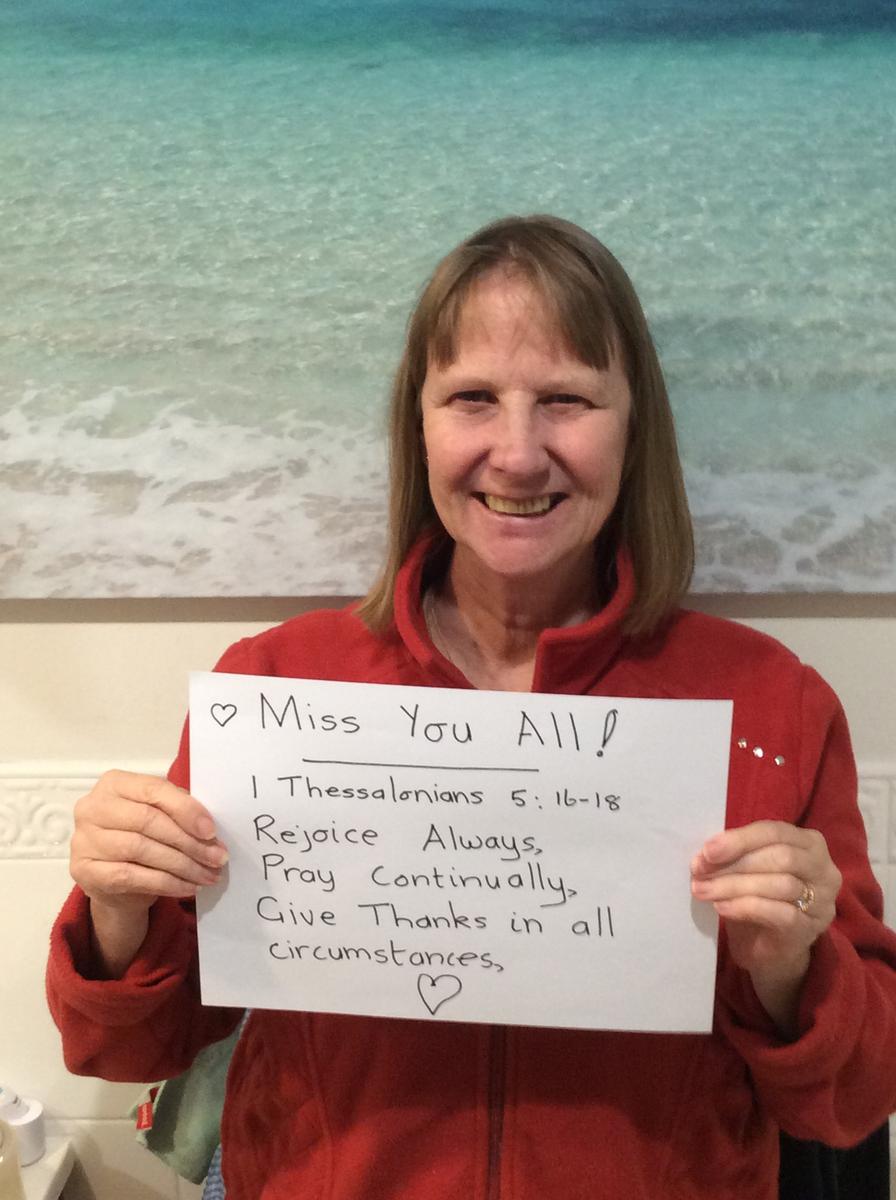 ♡ Miss You All!
1 Thessalonians 5:16-18
Rejoice Always,
Pray Continually,
Give Thanks in all
circumstances,
♡